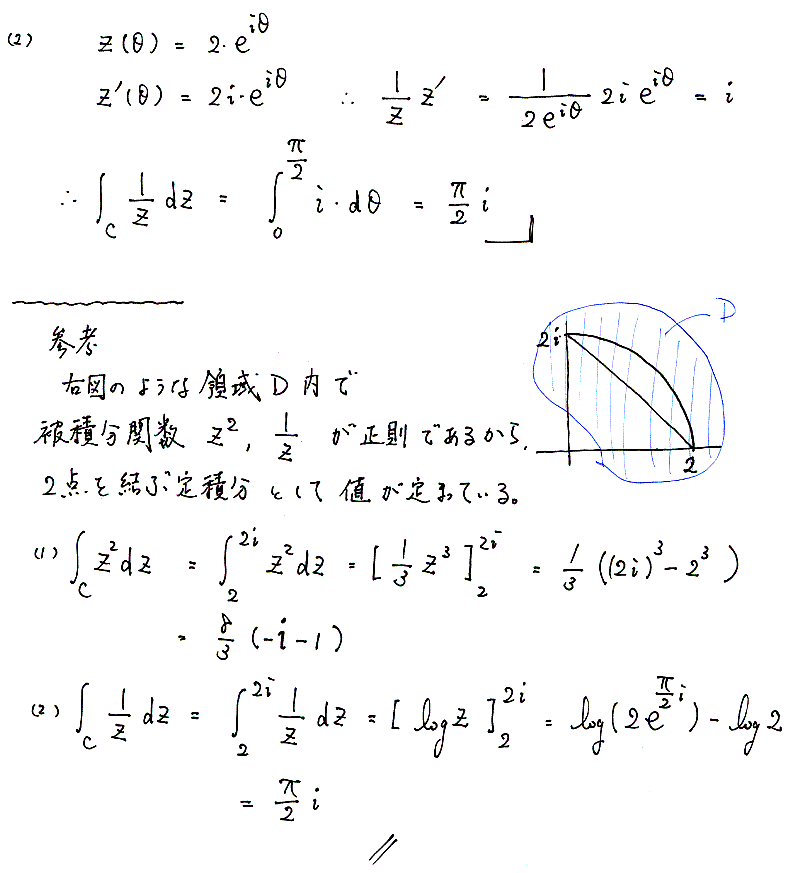 (2) z(θ) = 2·e^{iθ}
z'(θ) = 2i·e^{iθ} ∴ \frac{1}{z} z' = \frac{1}{2e^{iθ}} 2i e^{iθ} = i
∴ ∫_C \frac{1}{z} dz = ∫_0^{\frac{π}{2}} i·dθ = \frac{π}{2} i
参考
右図のような領域D内で
被積分関数 z^2, \frac{1}{z} が正則であるから,
2点を結ぶ定積分として値が定まっている。
D
2i
2
(1) ∫_C z^2 dz = ∫_2^{2i} z^2 dz = [\frac{1}{3} z^3]_2^{2i} = \frac{1}{3} ((2i)^3 - 2^3)
= \frac{8}{3} (-i-1)
(2) ∫_C \frac{1}{z} dz = ∫_2^{2i} \frac{1}{z} dz = [log z]_2^{2i} = log(2e^{\frac{π}{2}i}) - log 2
= \frac{π}{2} i
//